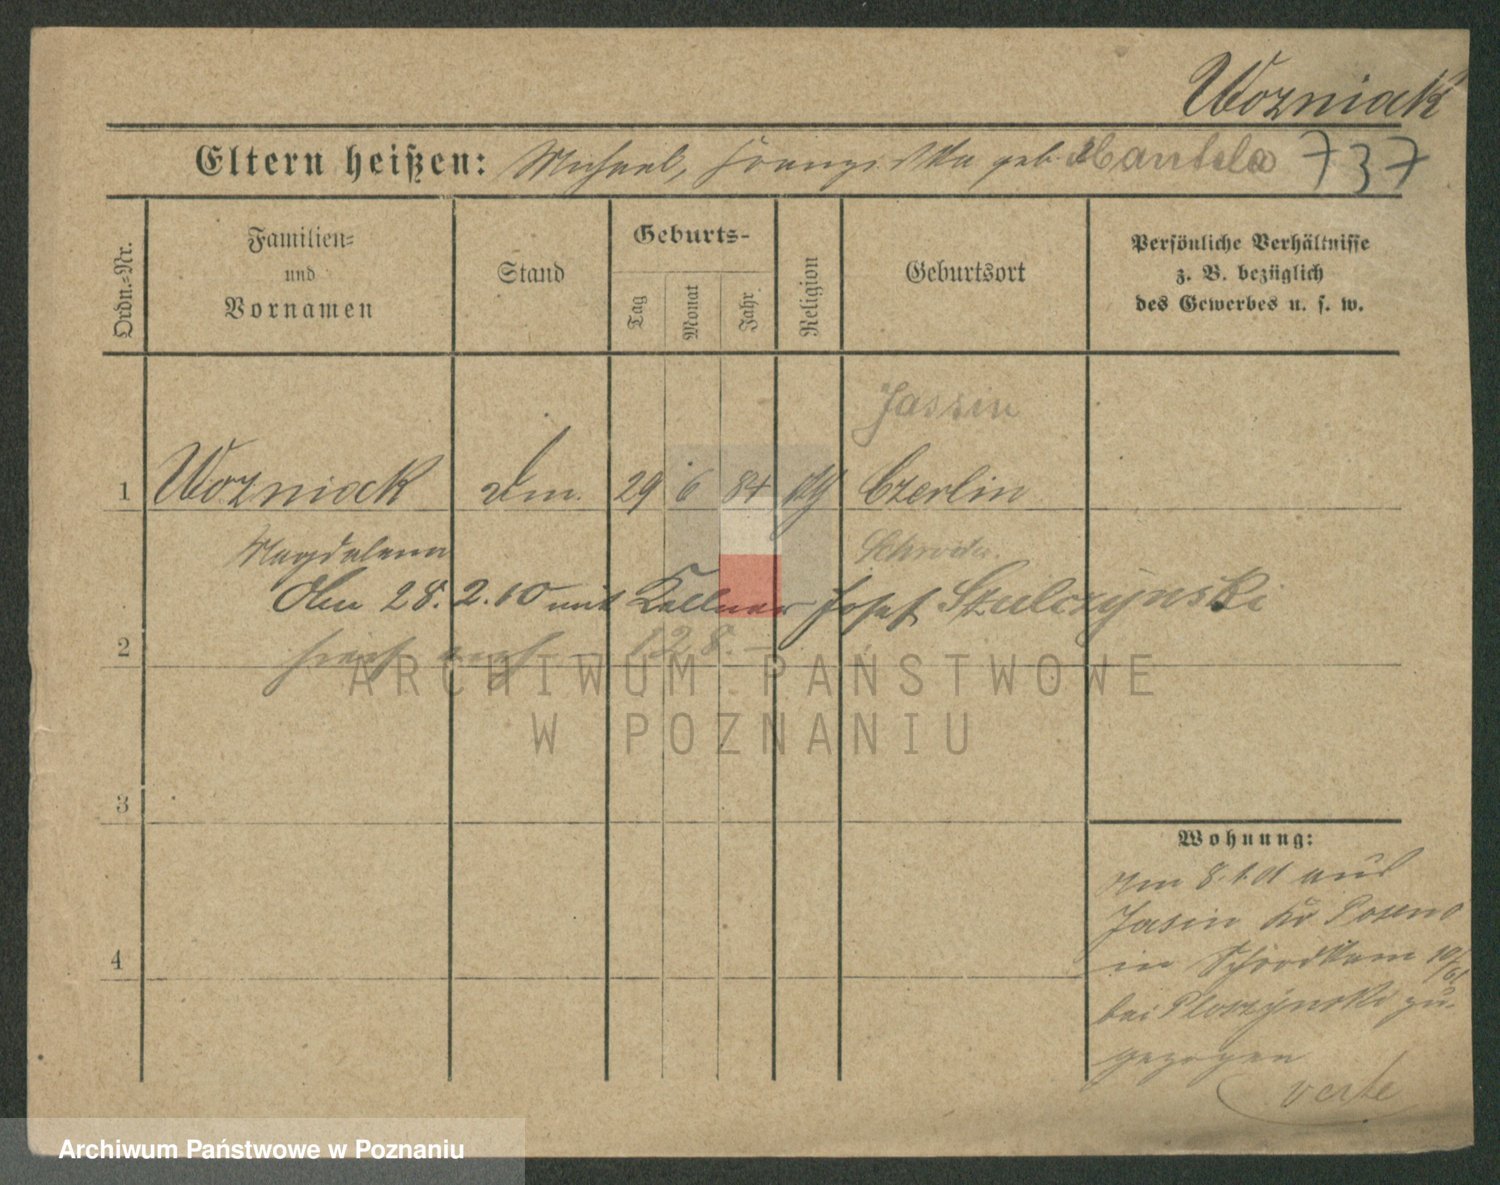 Wozniack
Eltern heißen: Michael, Franziska geb. Mantela 737
Ordn.-Nr.
Familien=
und
Vornamen
Stand
Geburts-
Tag
Monat
Jahr
Religion
Geburtsort
Persönliche Verhältnisse
z. B. bezüglich
des Gewerbes u. s. w.
Jassin
1 Wozniack 29 6 84 Czerlin
Magdalena
28. 2. 10 mit Kellner Josef Szulczynski
2 128.
ARCHIWUM PAŃSTWOWE
W POZNANIU
3
Wohnung:
Am 8. 1. 01 aus
Jasin Kr Posen O
in
4
bei zu-
gezogen
verte
Archiwum Państwowe w Poznaniu